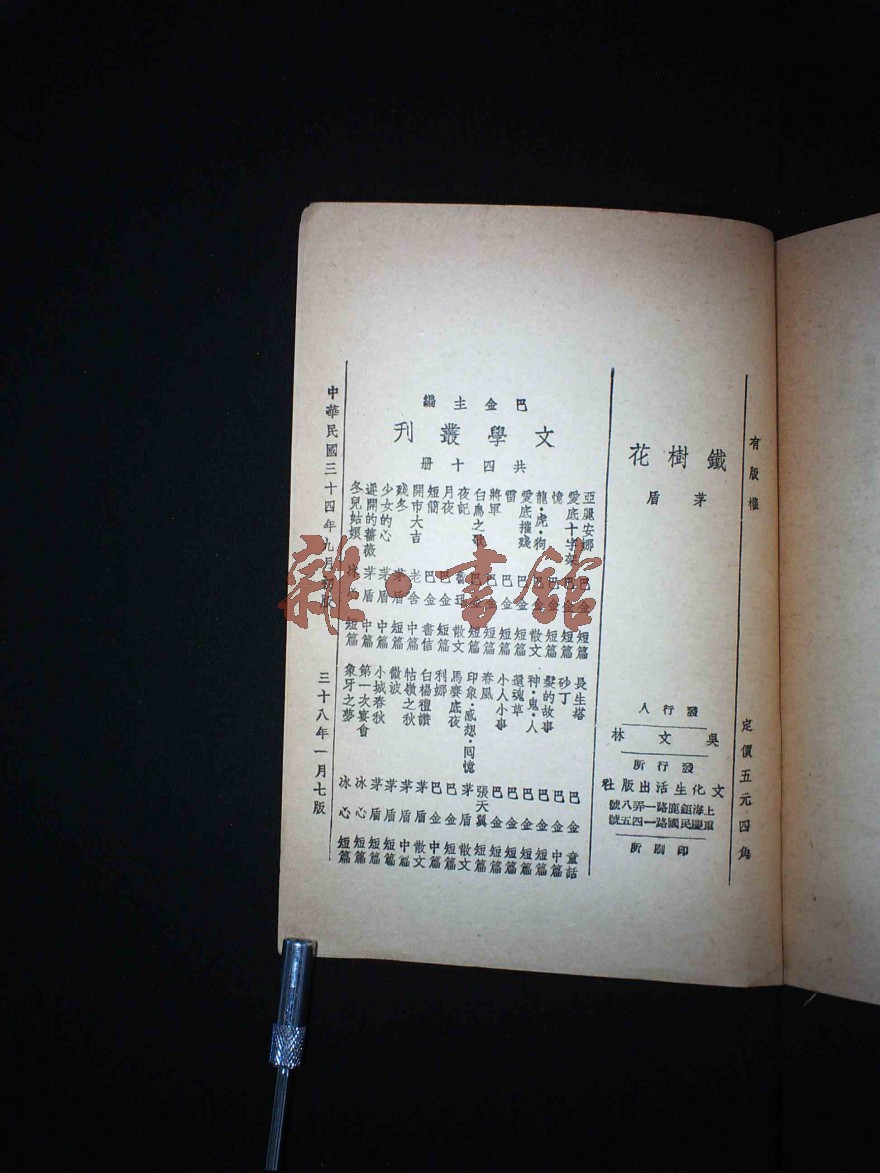 有版權
定價五元四角
鐵樹花
茅盾
發行人
吳文林
發行所
文化生活出版社
上海鉅鹿路一弄八號
重慶民國路一四五號
印刷所
巴金主編
文學叢刊
共四十冊
亞麗安娜 巴金 短篇
愛底十字架 巴金 短篇
憶 巴金 短篇
龍·虎·狗 巴金 散文
愛底摧殘 巴金 短篇
雷 巴金 短篇
將軍 巴金 短篇
白鳥之歌 巴金 短篇
夜記 魯迅 散文
月夜 巴金 短篇
短簡 巴金 書信
開市大吉 老舍 中篇
殘冬 茅盾 短篇
少女的心 茅盾 中篇
遲開的薔薇 茅盾 中篇
冬兒姑娘 冰心 短篇
長生塔 巴金 童話
砂丁 巴金 中篇
髮的故事 巴金 短篇
神·鬼·人 巴金 短篇
還魂草 巴金 短篇
小人小事 巴金 短篇
春風 張天翼 短篇
印象·感想·回憶 茅盾 散文
馬賽底夜 巴金 短篇
利娜 巴金 中篇
白楊禮讚 茅盾 散文
牯嶺之秋 茅盾 中篇
微波 茅盾 短篇
小城春秋 茅盾 短篇
第一次宴會 冰心 短篇
象牙之夢 冰心 短篇
中華民國三十四年九月初版
三十八年一月七版
雜·書館